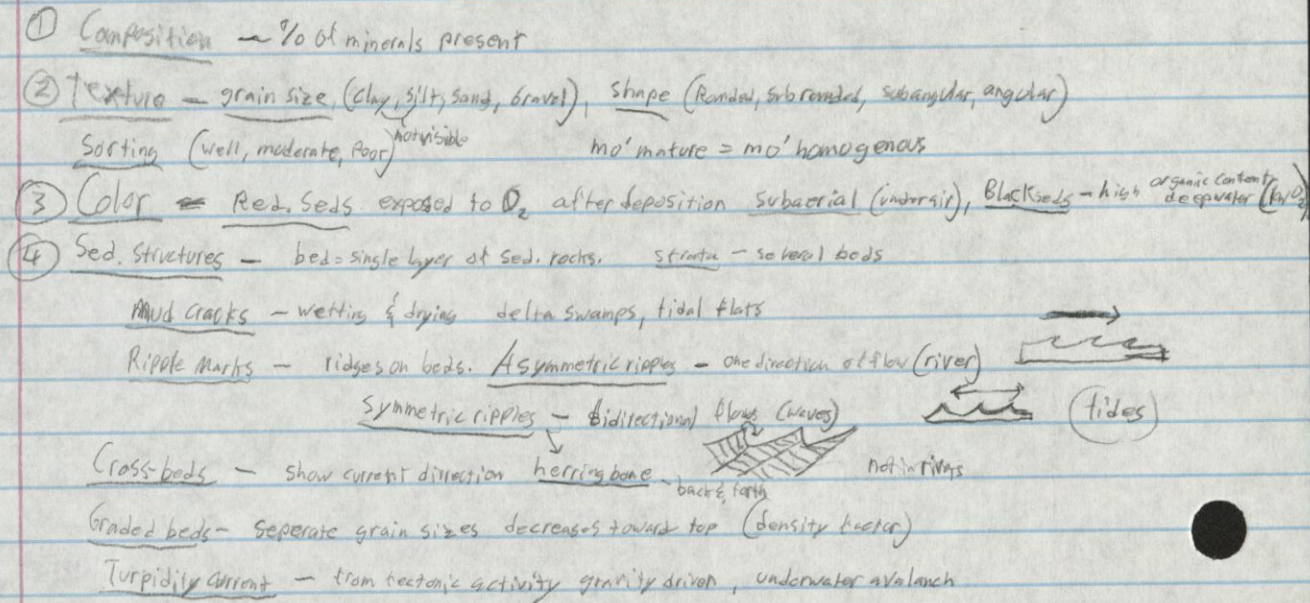 ① Composition - % of minerals present
② Texture - grain size, (clay, silt, sand, Gravel), shape (Rounded, subrounded, subangular, angular)
not visible
Sorting (well, moderate, poor) mo' mature = mo' homogenous
③ Color - Red. Seds. exposed to O₂ after deposition subaerial (under air), Black seds - high organic content, deepwater (low O₂)
④ Sed. Structures - bed = single layer of sed. rocks. strata - several beds
Mud cracks - wetting & drying delta swamps, tidal flats
Ripple marks - ridges on beds. Asymmetric ripples - one direction of flow (river)
Symmetric ripples - Bidirectional flows (waves) (tides)
Cross-beds - show current dirrection herringbone - back & forth not in rivers
Graded beds - seperate grain sizes decreases toward top (density factor)
Turpidity current - from tectonic activity gravity driven, underwater avalanch